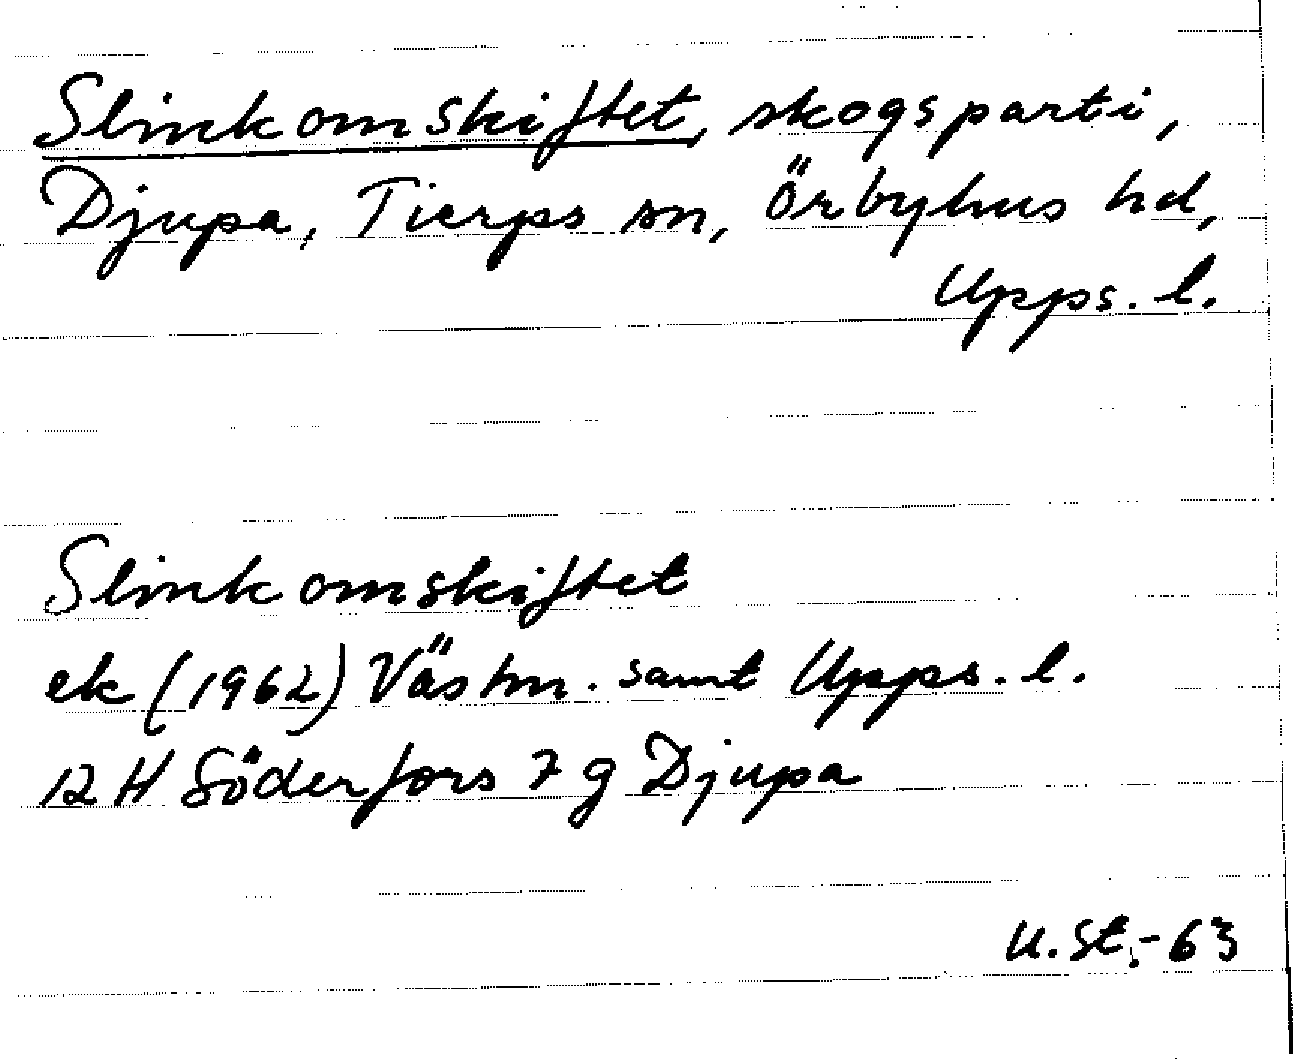 Slinkomskiftet, skogsparti,
Djupa, Tierps sn, Örbyhus hd,
Upps. l.
Slinkomskiftet
ek (1962) Västm. samt Upps. l.
12 H Söderfors 7 g Djupa
U. St. - 63